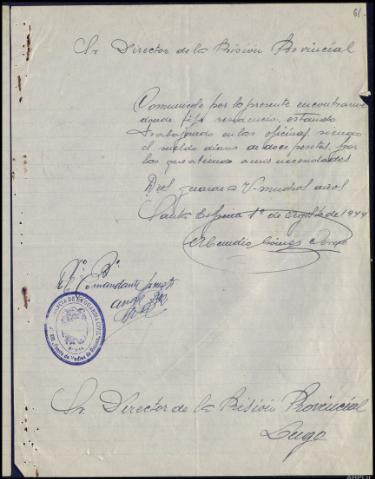 61.
Sr Director de la Prision Provincial
Comunicole por la presente encontrarme
donde fije residencia, estando
trabajando en las oficinas
el sueldo diario de doce pesetas, por
las que atiendo a mis necesidades
Dios guarde a V. muchos años
Santa 1º de Agosto de 1944
Gómez
Vº Bº
Comandante
Sr Director de la Prision Provincial
Lugo